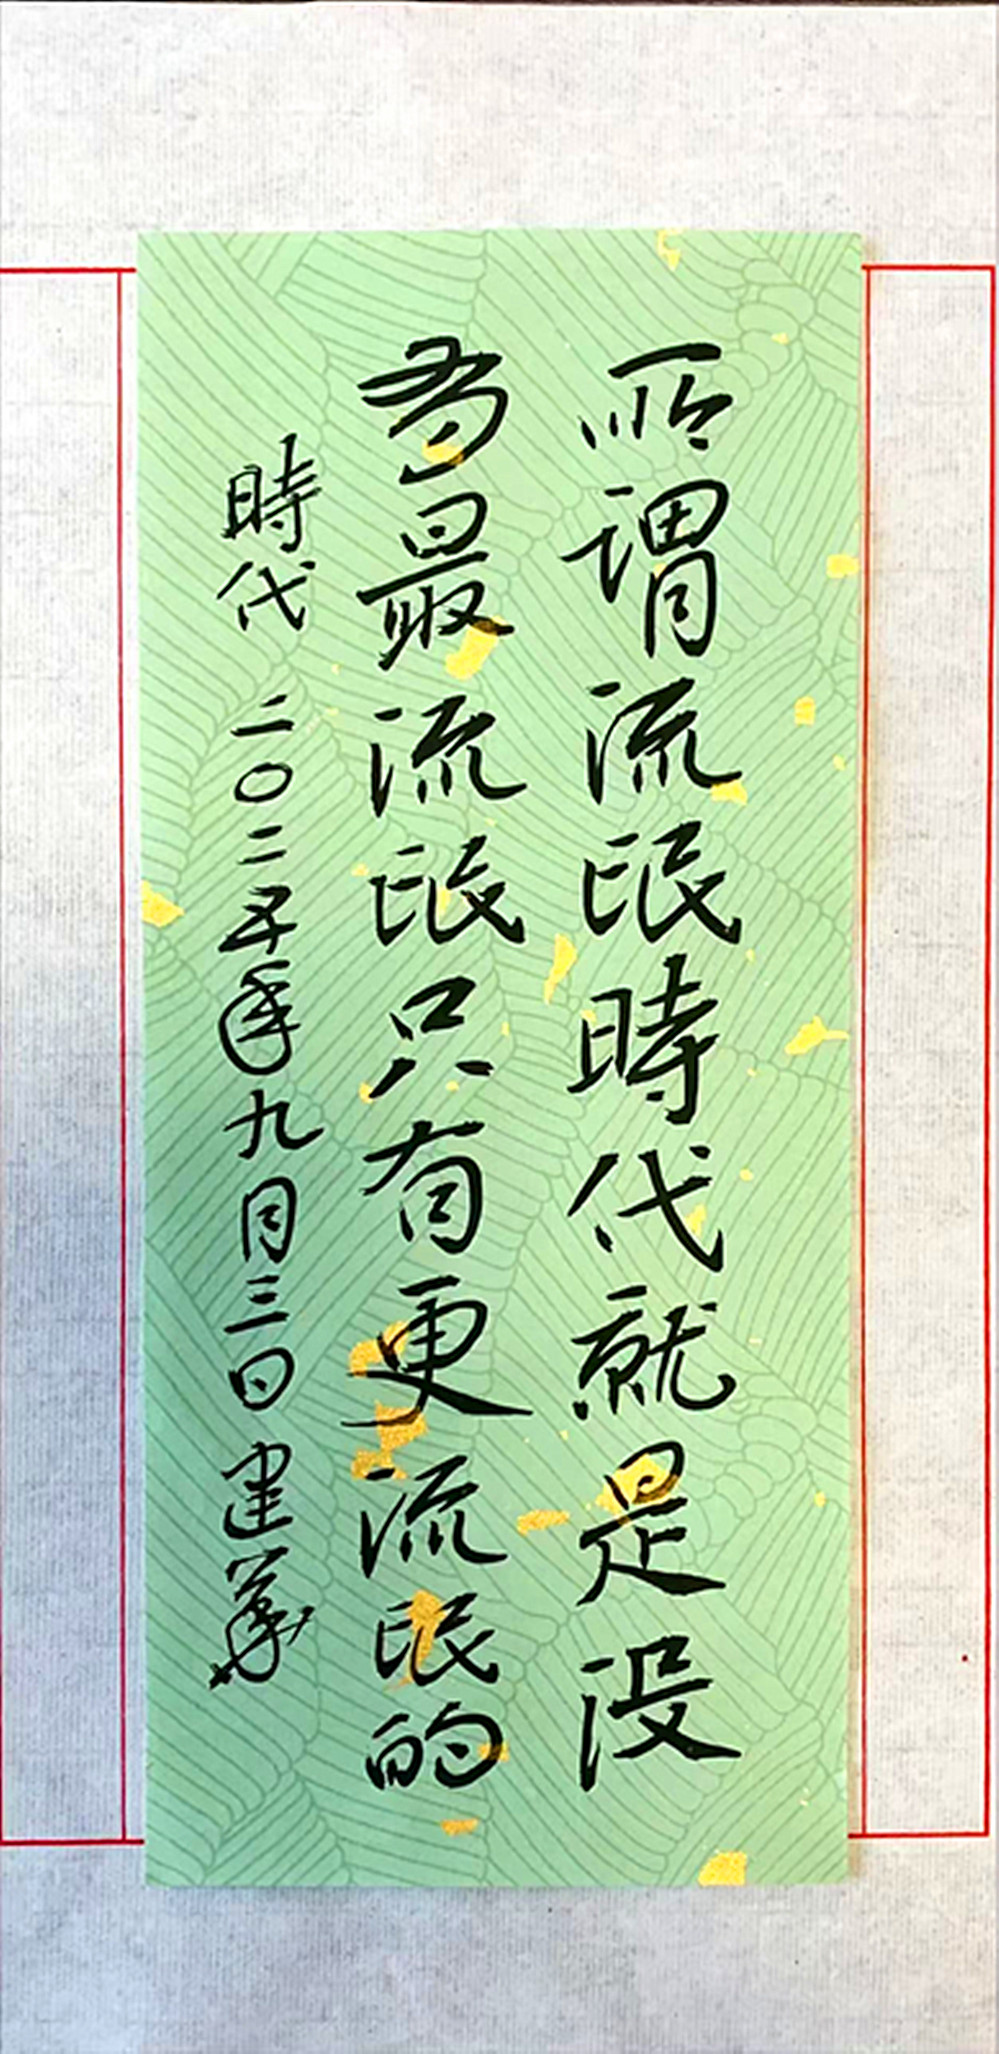 所謂流氓時代就是没
有最流氓只有更流氓的
時代 二〇二五年九月三日 建